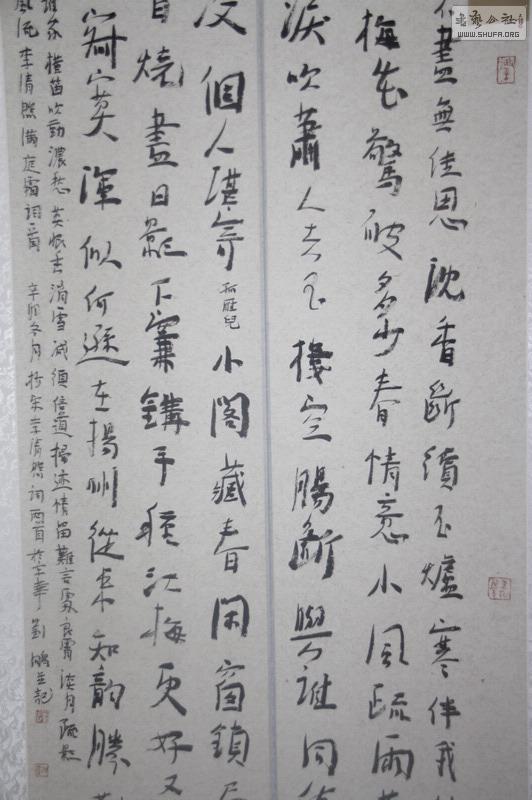 書法公社
WWW.SHUFA.ORG
盡無佳思沈香斷續玉爐寒伴我
梅心驚破多少春情意小風疏雨
淚吹簫人去玉樓空腸斷與誰同倚
個人堪寄孤雁兒小閣藏春閑窗鎖
自燒盡日影下簾鉤手種江梅更好又
寂寞渾似何遜在揚州從來知韻勝
誰家橫笛吹動濃愁莫恨香消雪減須信道掃迹情留難言處良宵淡月疏影
風流李清照滿庭霜詞一首辛卯冬月抄宋李清照詞兩首於京華劉鵬並記